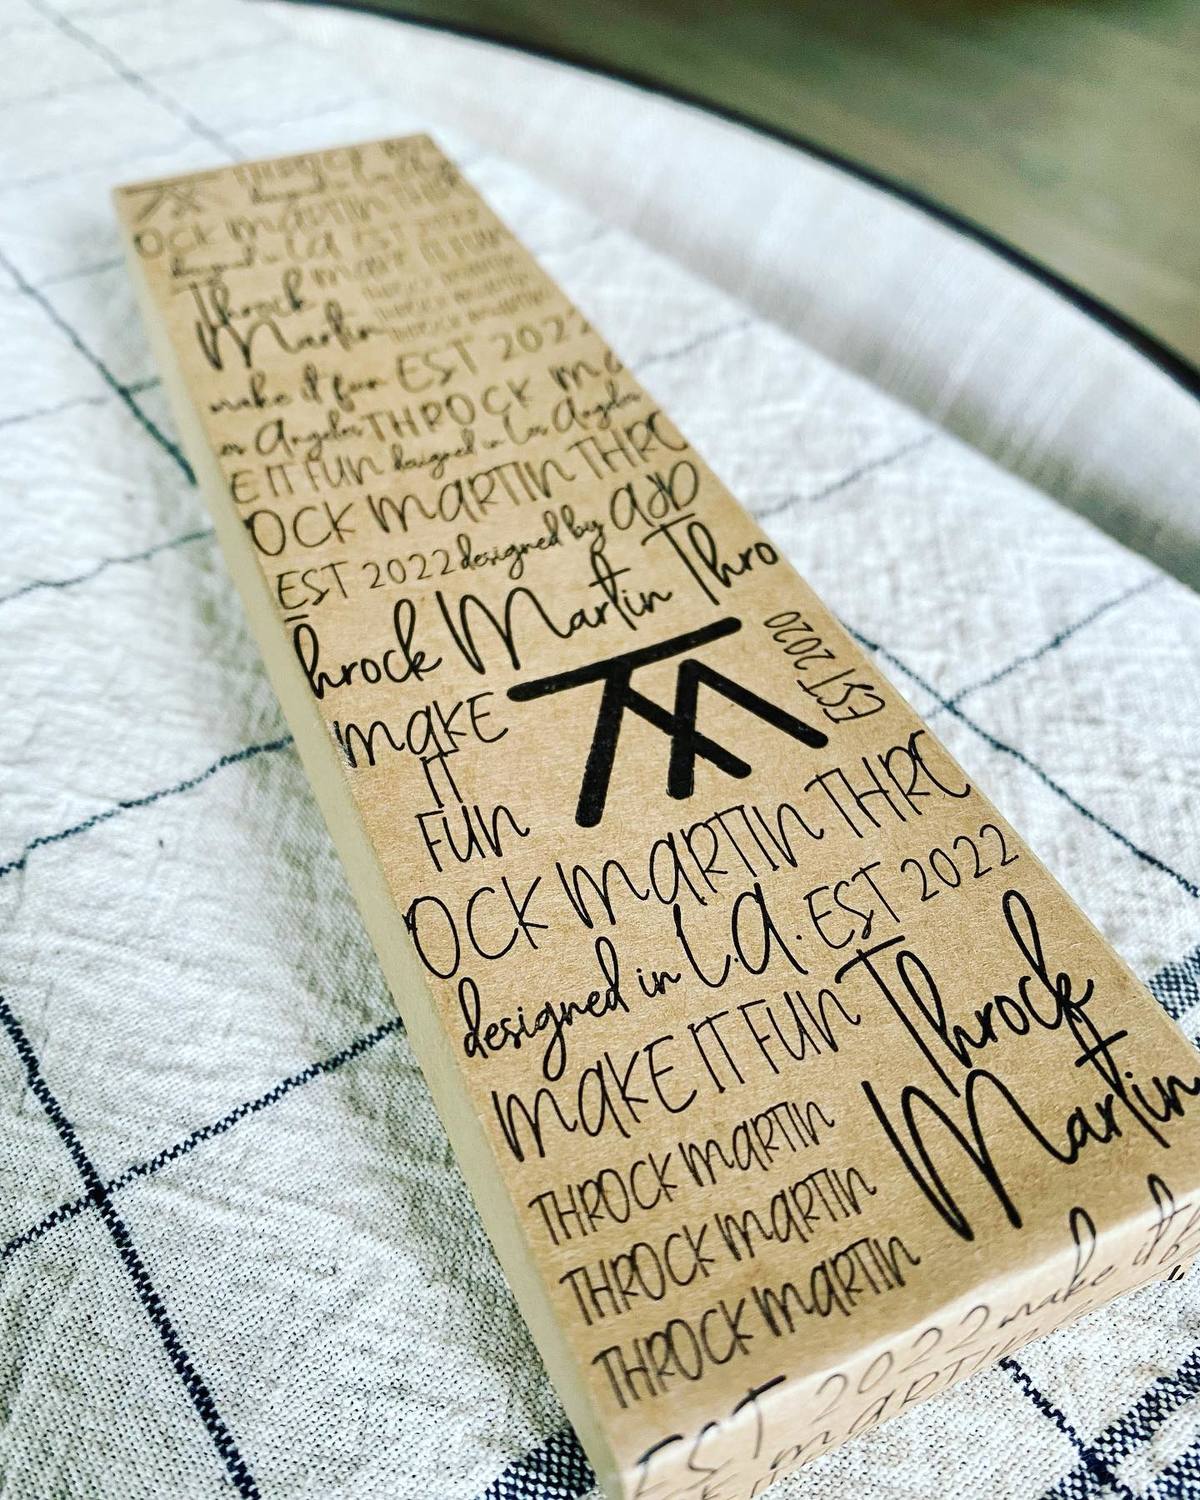 THROCK
OCK MARTIN THR
L.A. EST 2022
Throck MAKE IT FUN
Martin THROCK MARTIN
THROCK MARTIN
THROCK MARTIN
make it fun EST 2022
Los Angeles THROCK MA
E IT FUN designed in Los Angeles
OCK MARTIN THRO
EST 2022 designed by
hrock Martin Thro
MAKE
IT
FUN
TM
EST 2020
OCK MARTIN THRO
designed in L.A. EST 2022
MAKE IT FUN Throck
Martin
THROCK MARTIN
THROCK MARTIN
THROCK MARTIN
EST 2022 make it
MARTIN